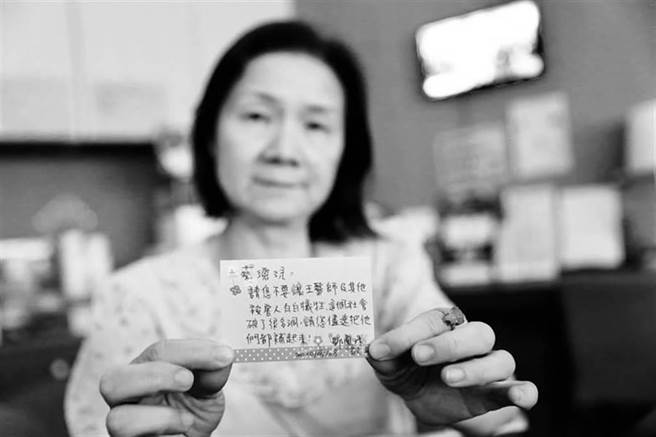 蔡總統，
請您不要讓王醫師及其他
被害人白白犧牲，這個社會
破了很多洞，請您儘速把他
們都補起來！